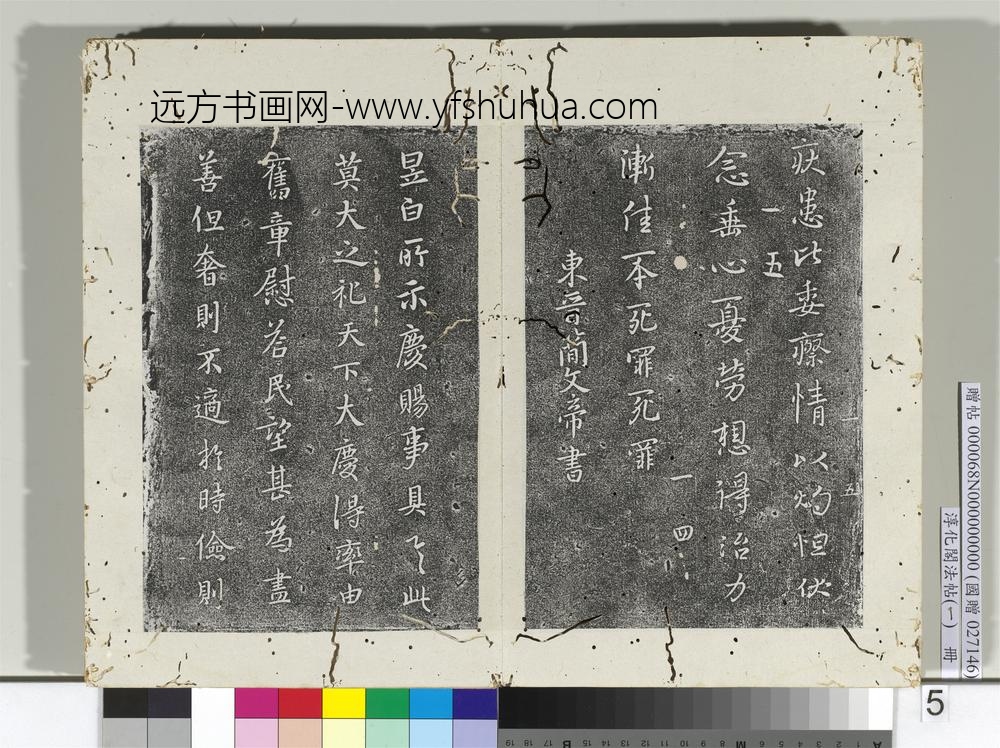 远方书画网-www.yfshuhua.com
疾患比委療情以灼怛伏
一五
念垂心憂勞想得治力
一四
漸佳本死罪死罪
東晉簡文帝書
昱白所示慶賜事具之此
莫大之祀天下大慶得率由
舊章慰若民望甚為盡
善但奢則不適於時儉則
贈帖 000068N000000000 (國贈 027146)
淳化閣法帖(一) 冊
5